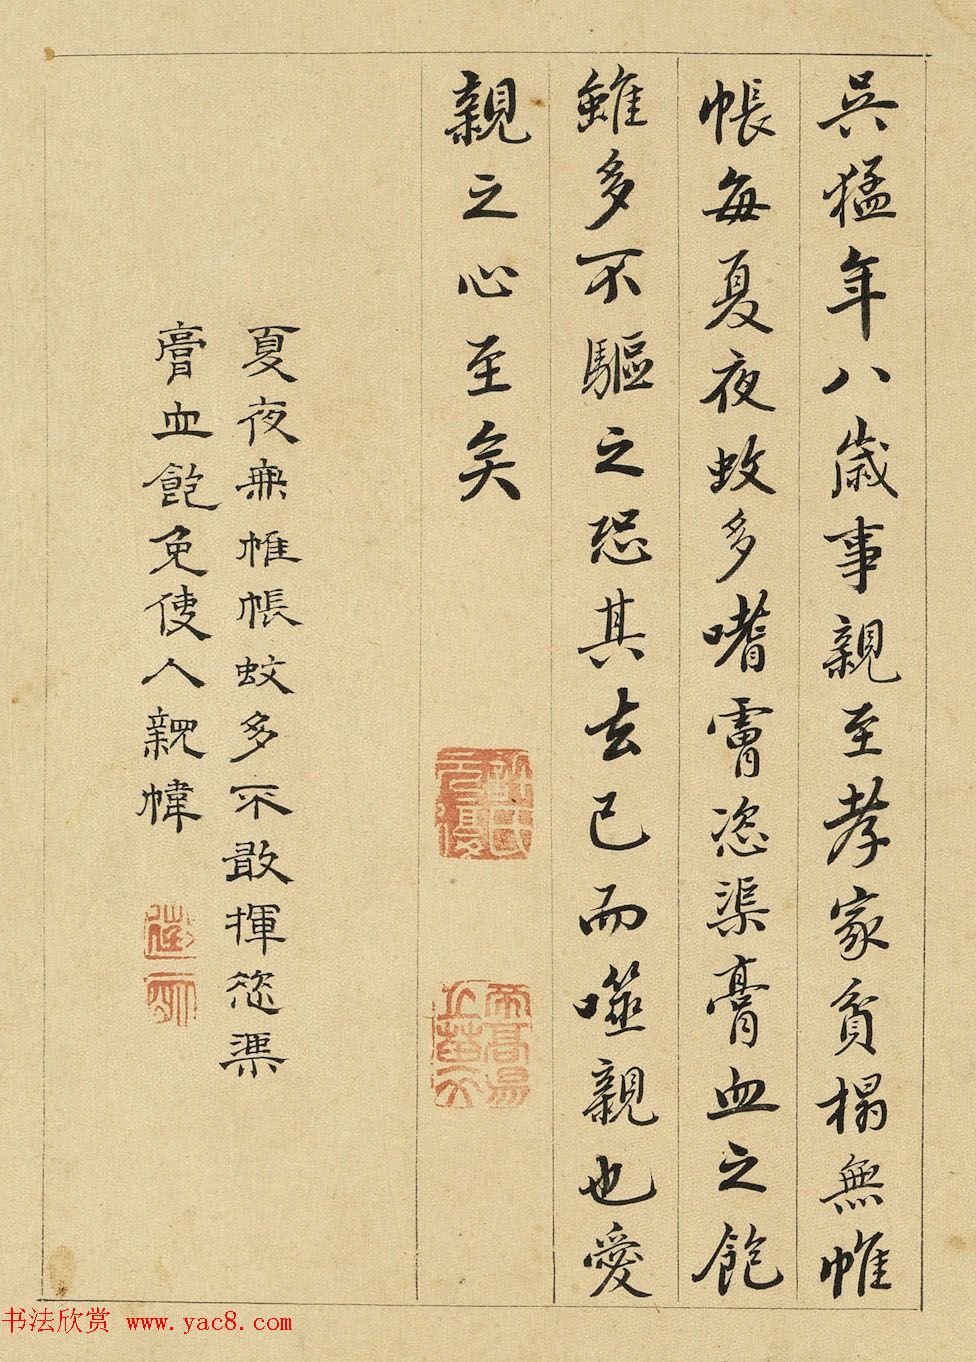 吳猛年八歲事親至孝家貧榻無帷
帳每夏夜蚊多噆膚恣渠膏血之飽
雖多不驅之恐其去己而噬親也愛
親之心至矣
夏夜無帷帳蚊多不敢揮恣渠
膏血飽免使入親幃
书法欣赏 www.yac8.com